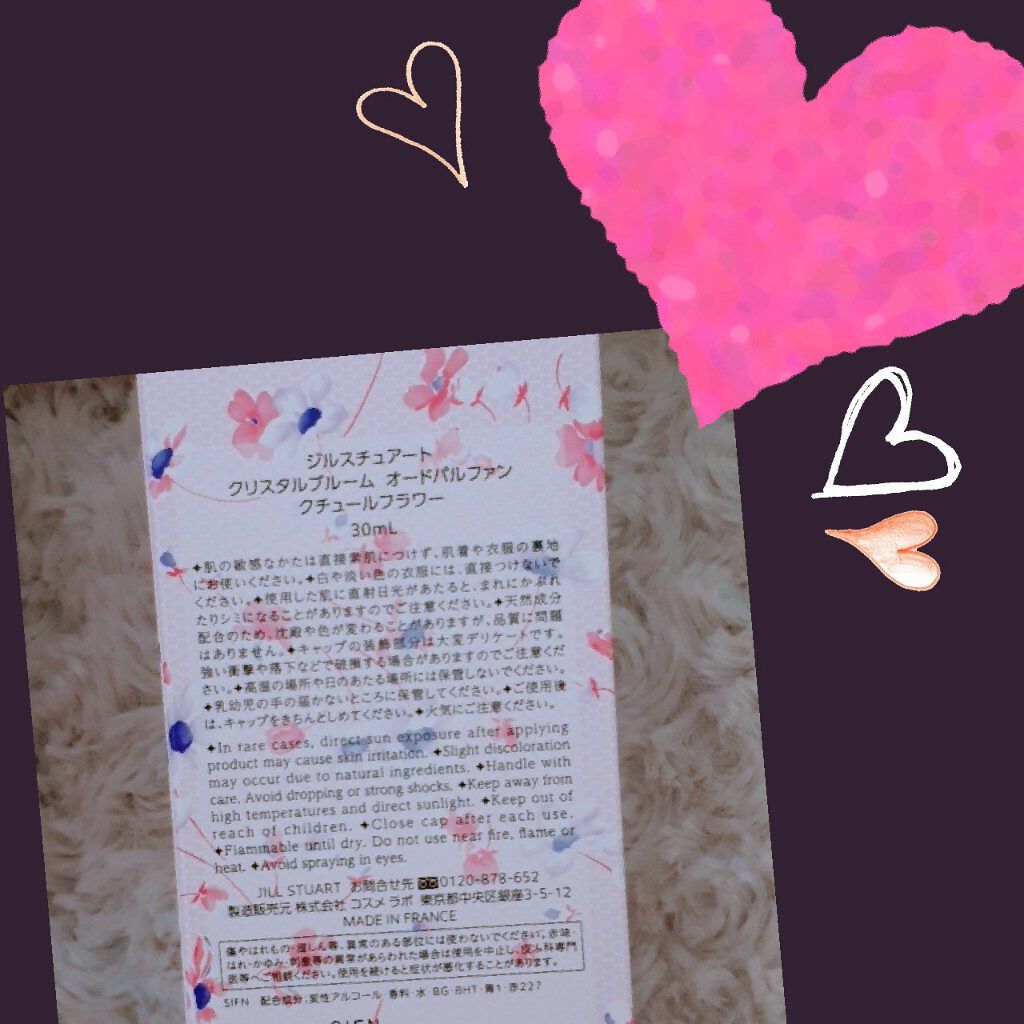 ジルスチュアート
クリスタルブルーム オードパルファン
クチュールフラワー
30mL
✦肌の敏感なかたは直接素肌につけず、肌着や衣服の裏地
にお使いください。✦白や淡い色の衣服には、直接つけないで
ください。✦使用した肌に直射日光があたると、まれにかぶれ
たりシミになることがありますのでご注意ください。✦天然成分
配合のため、沈殿や色が変わることがありますが、品質に問題
はありません。✦キャップの装飾部分は大変デリケートです。
強い衝撃や落下などで破損する場合がありますのでご注意くだ
さい。✦高温の場所や日のあたる場所には保管しないでください。
✦乳幼児の手の届かないところに保管してください。✦ご使用後
は、キャップをきちんとしめてください。✦火気にご注意ください。
✦In rare cases, direct sun exposure after applying
product may cause skin irritation. ✦Slight discoloration
may occur due to natural ingredients. ✦Handle with
care. Avoid dropping or strong shocks. ✦Keep away from
high temperatures and direct sunlight. ✦Keep out of
reach of children. ✦Close cap after each use.
✦Flammable until dry. Do not use near fire, flame or
heat. ✦Avoid spraying in eyes.
JILL STUART お問合せ先 0120-878-652
製造販売元 株式会社 コスメ ラボ 東京都中央区銀座3-5-12
MADE IN FRANCE
傷やはれもの・湿しん等、異常のある部位には使わないでください。赤味・
はれ・かゆみ・刺激等の異常があらわれた場合は使用を中止し、皮ふ科専門
医等へご相談ください。使用を続けると症状が悪化することがあります。
SIFN 配合成分:変性アルコール・香料・水・BG・BHT・青1・赤227